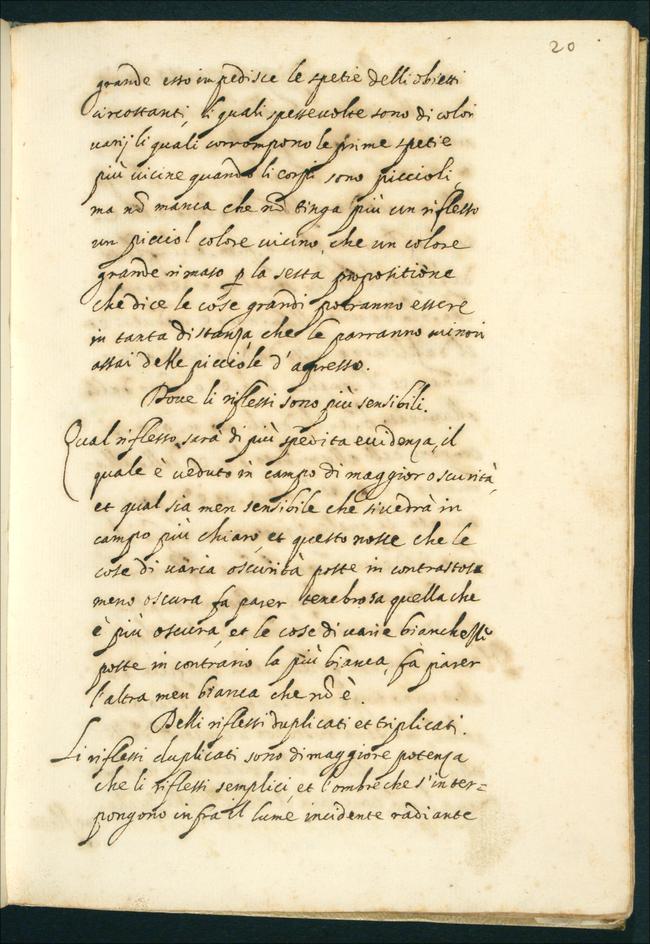 20
grande esso impedisce le spetie delli obietti
circostanti, li quali spessevolte sono di colori
varij li quali corrompono le prime spetie
più vicine quando li corpi sono piccioli,
ma nõ manca che nõ tinga più un riflesso
un picciol colore vicino, che un colore
grande rimoso p la sesta propositione
che dice le cose grandi potranno essere
in tanta distanza che le parranno minori
assai delle picciole d'apresso.
Dove li riflessi sono più sensibili.
Qual riflesso sarà di più spedita evidenza, il
quale è veduto in campo di maggior oscurità,
et qual sia men sensibile che si vedrà in
campo più chiaro, et questo nasce che le
cose di varia oscurità poste in contrasto la
meno oscura fa parer tenebrosa quella che
è più oscura, et le cose di varie bianchezze
poste in contrario la più bianca, fa parer
l'altra men bianca che nõ è.
Delli riflessi duplicati et triplicati.
Li riflessi duplicati sono di maggiore potenza
che li riflessi semplici, et l'ombre che s'inter=
pongono infra il lume incidente radiante